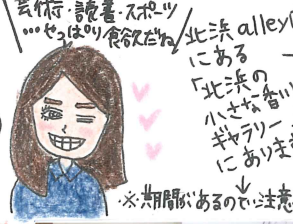 芸術・読書・スポーツ
…やっぱり食欲だね
北浜alley
にある
「北浜の
小さな香り
ギャラリー
にありま
↓
※期間があるのでご注意